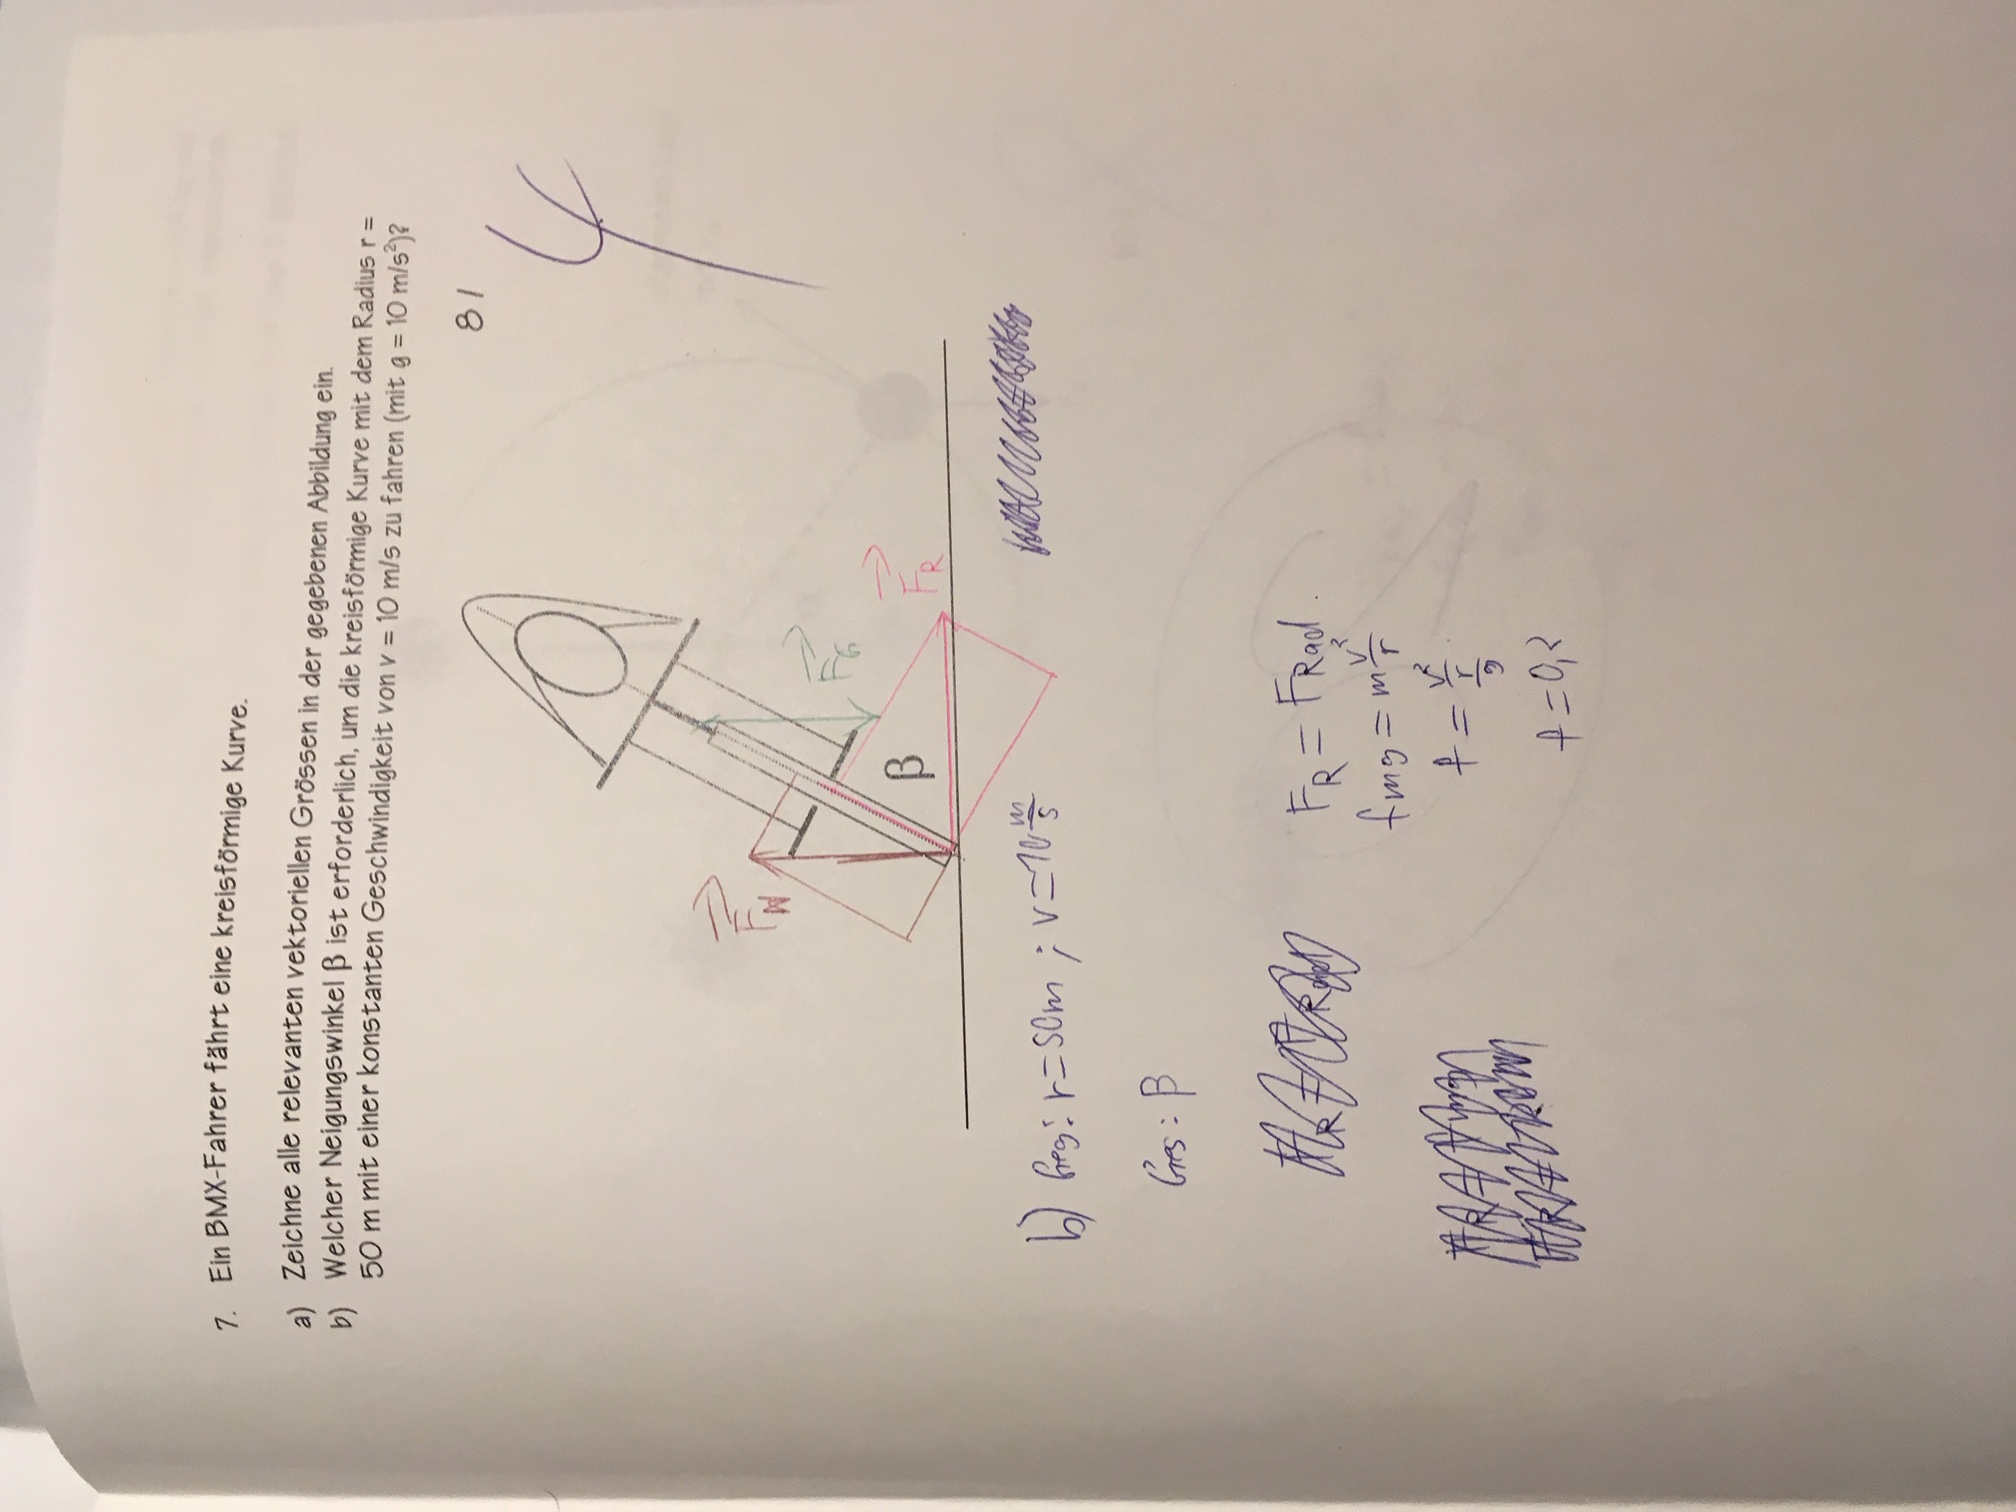 7. Ein BMX-Fahrer fährt eine kreisförmige Kurve.
a) Zeichne alle relevanten vektoriellen Grössen in der gegebenen Abbildung ein.
b) Welcher Neigungswinkel β ist erforderlich, um die kreisförmige Kurve mit dem Radius r =
50 m mit einer konstanten Geschwindigkeit von v = 10 m/s zu fahren (mit g = 10 m/s²)?
8/
4
F_N
F_G
β
F_R
b) Geg: r=50m ; v=10 m/s
Ges: β
F_R = F_Rad.
fmg = m v²/r
f = v²/r/g
f=0,2